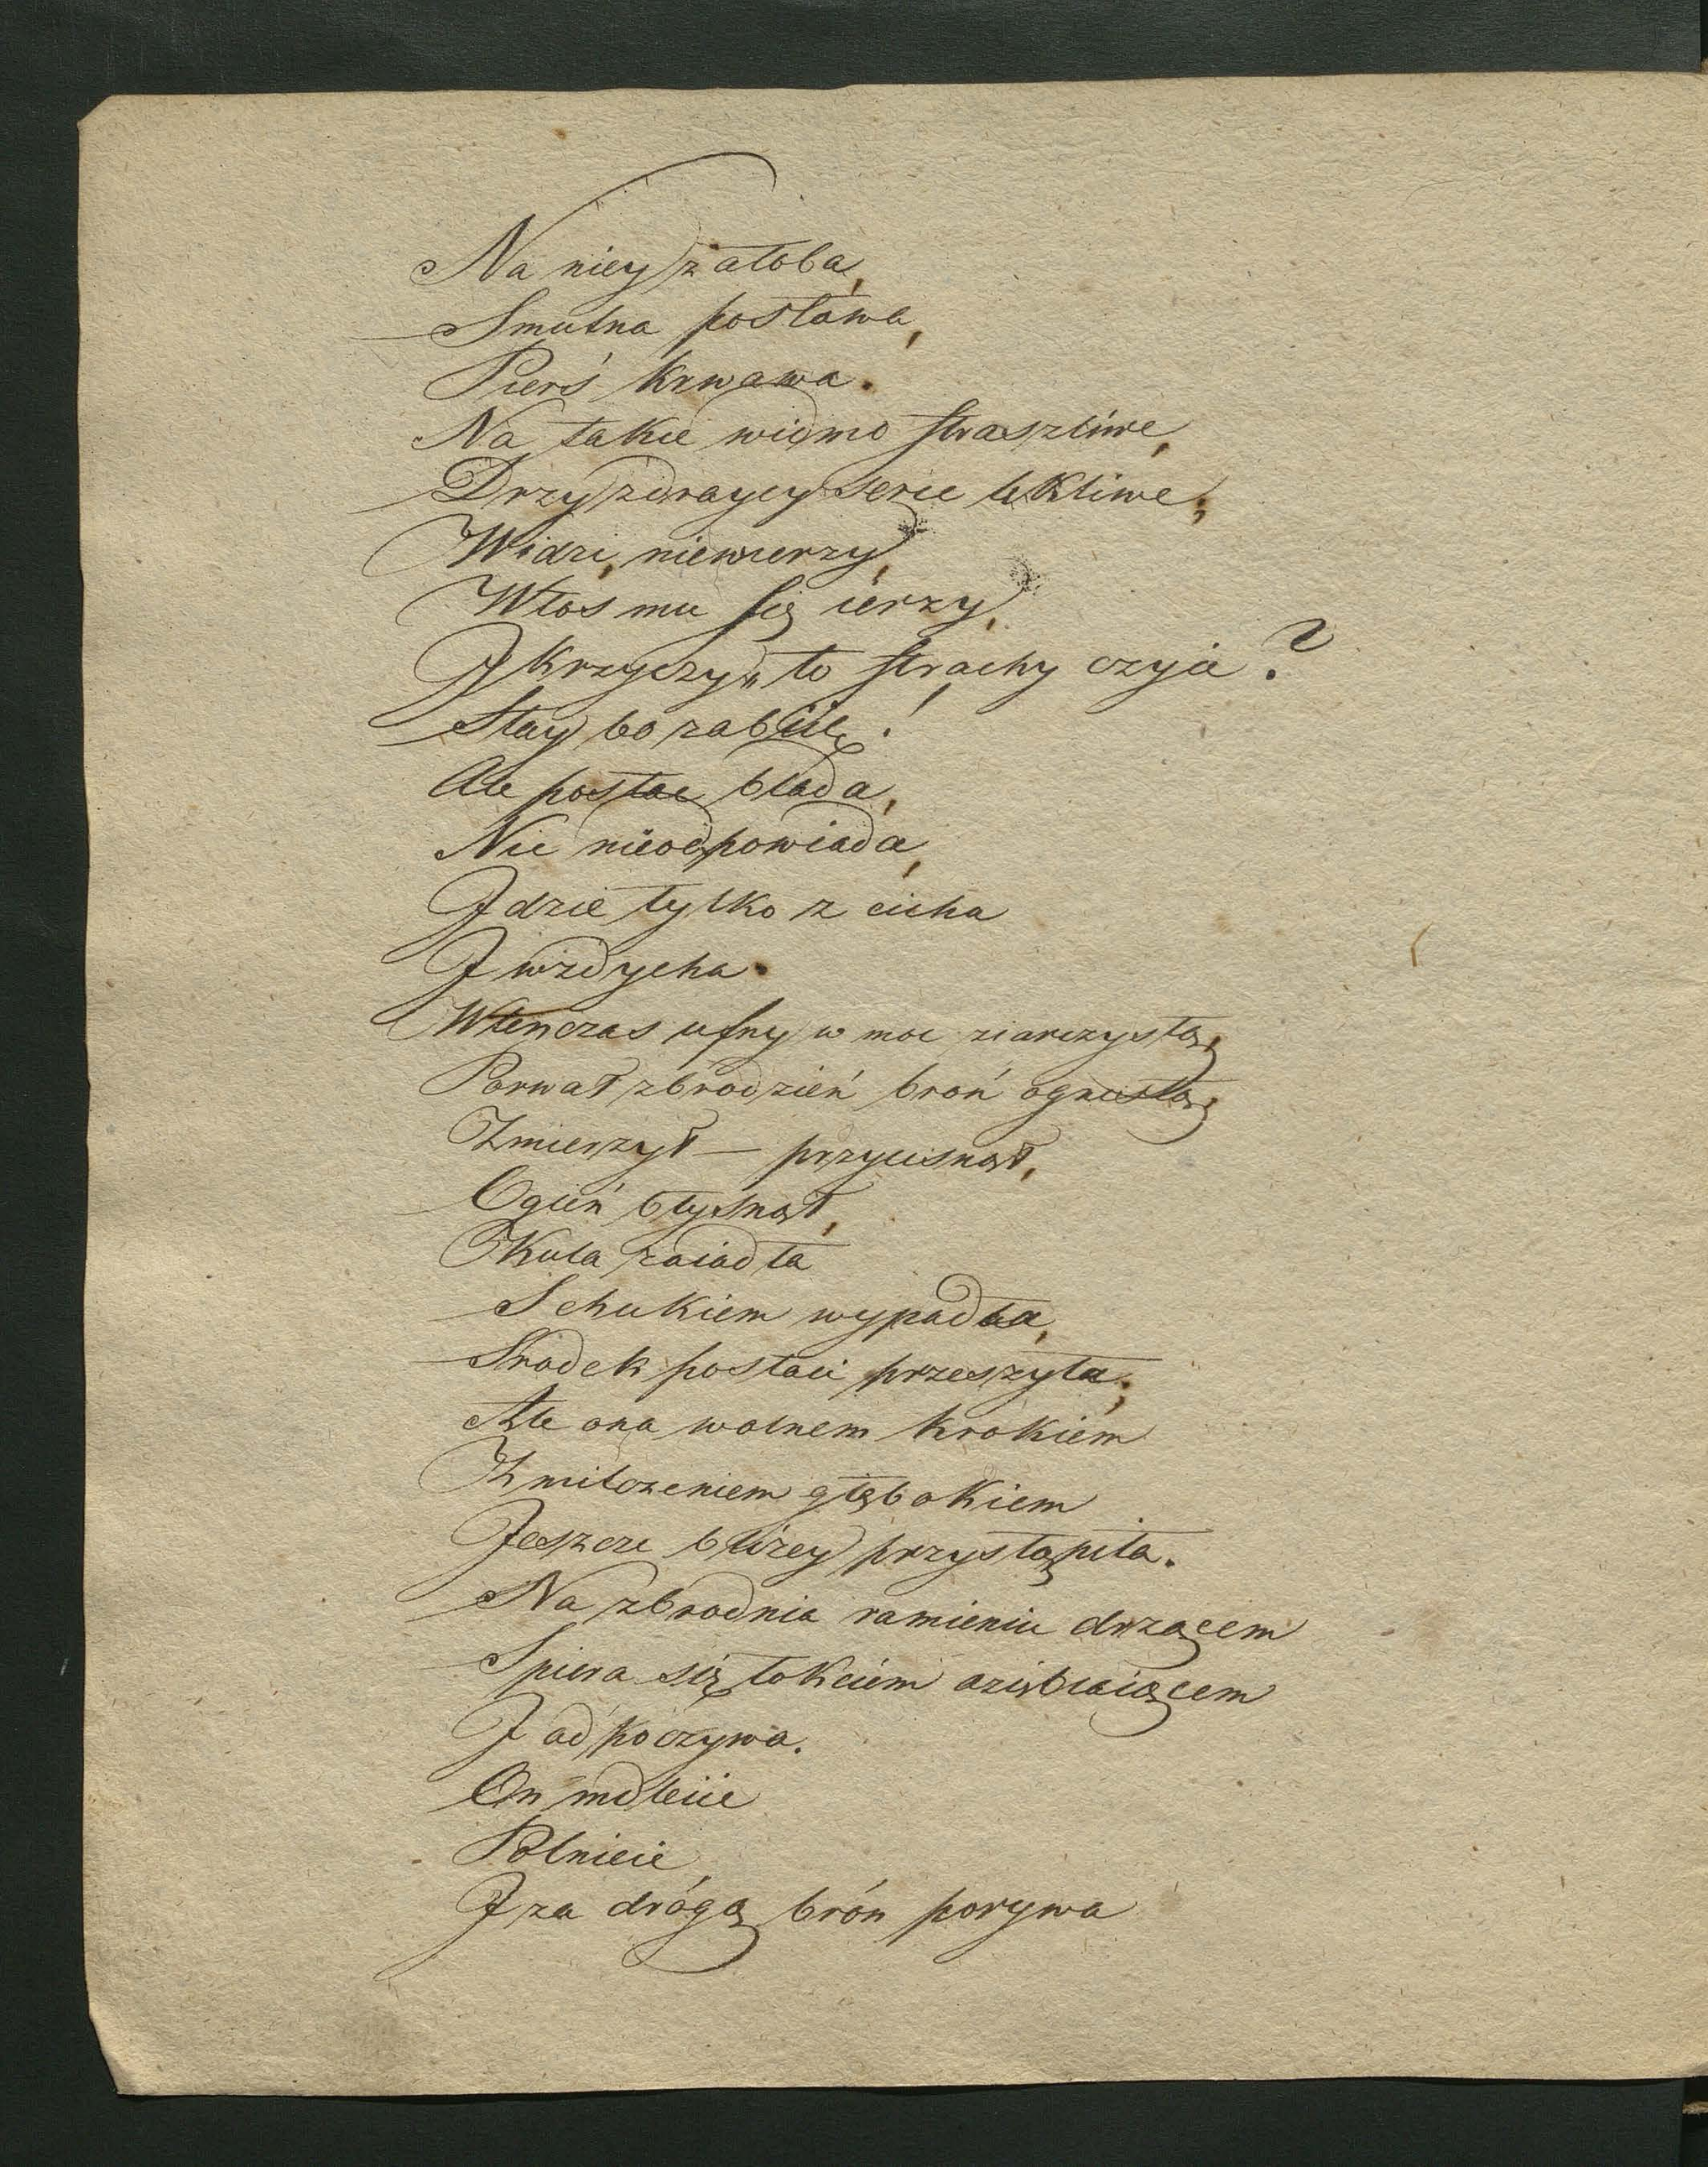 Na niey żałoba,
Smutna postawa,
Pierś krwawa.
Na takie widmo straszliwe,
Drzy zdraycy serce lękliwe;
Widzi, niewierzy,
Włos mu się ierzy,
I krzyczy „to strachy czyia?
Stay bo zabiię!
Ale postac blada,
Nic nieodpowiada,
Idzie tylko z cicha
I wzdycha.
Wtenczas ufny w moc siarczystą,
Porwał zbrodzień broń ognistą;
Zmierzył — przycisnął,
Ogień błysnął,
Kula zaiadła
S hukiem wypadła,
Srodek postaci przeszyła;
Ale ona wolnem krokiem
Z milczeniem głębokiem
Jeszcze bliżey przystąpiła.
Na zbrodnia ramieniu drzącem
Spiera się łokciem oziębiaiącem
I odpoczywa.
On mdleiie
Polnieie,
I za drógą brón porywa